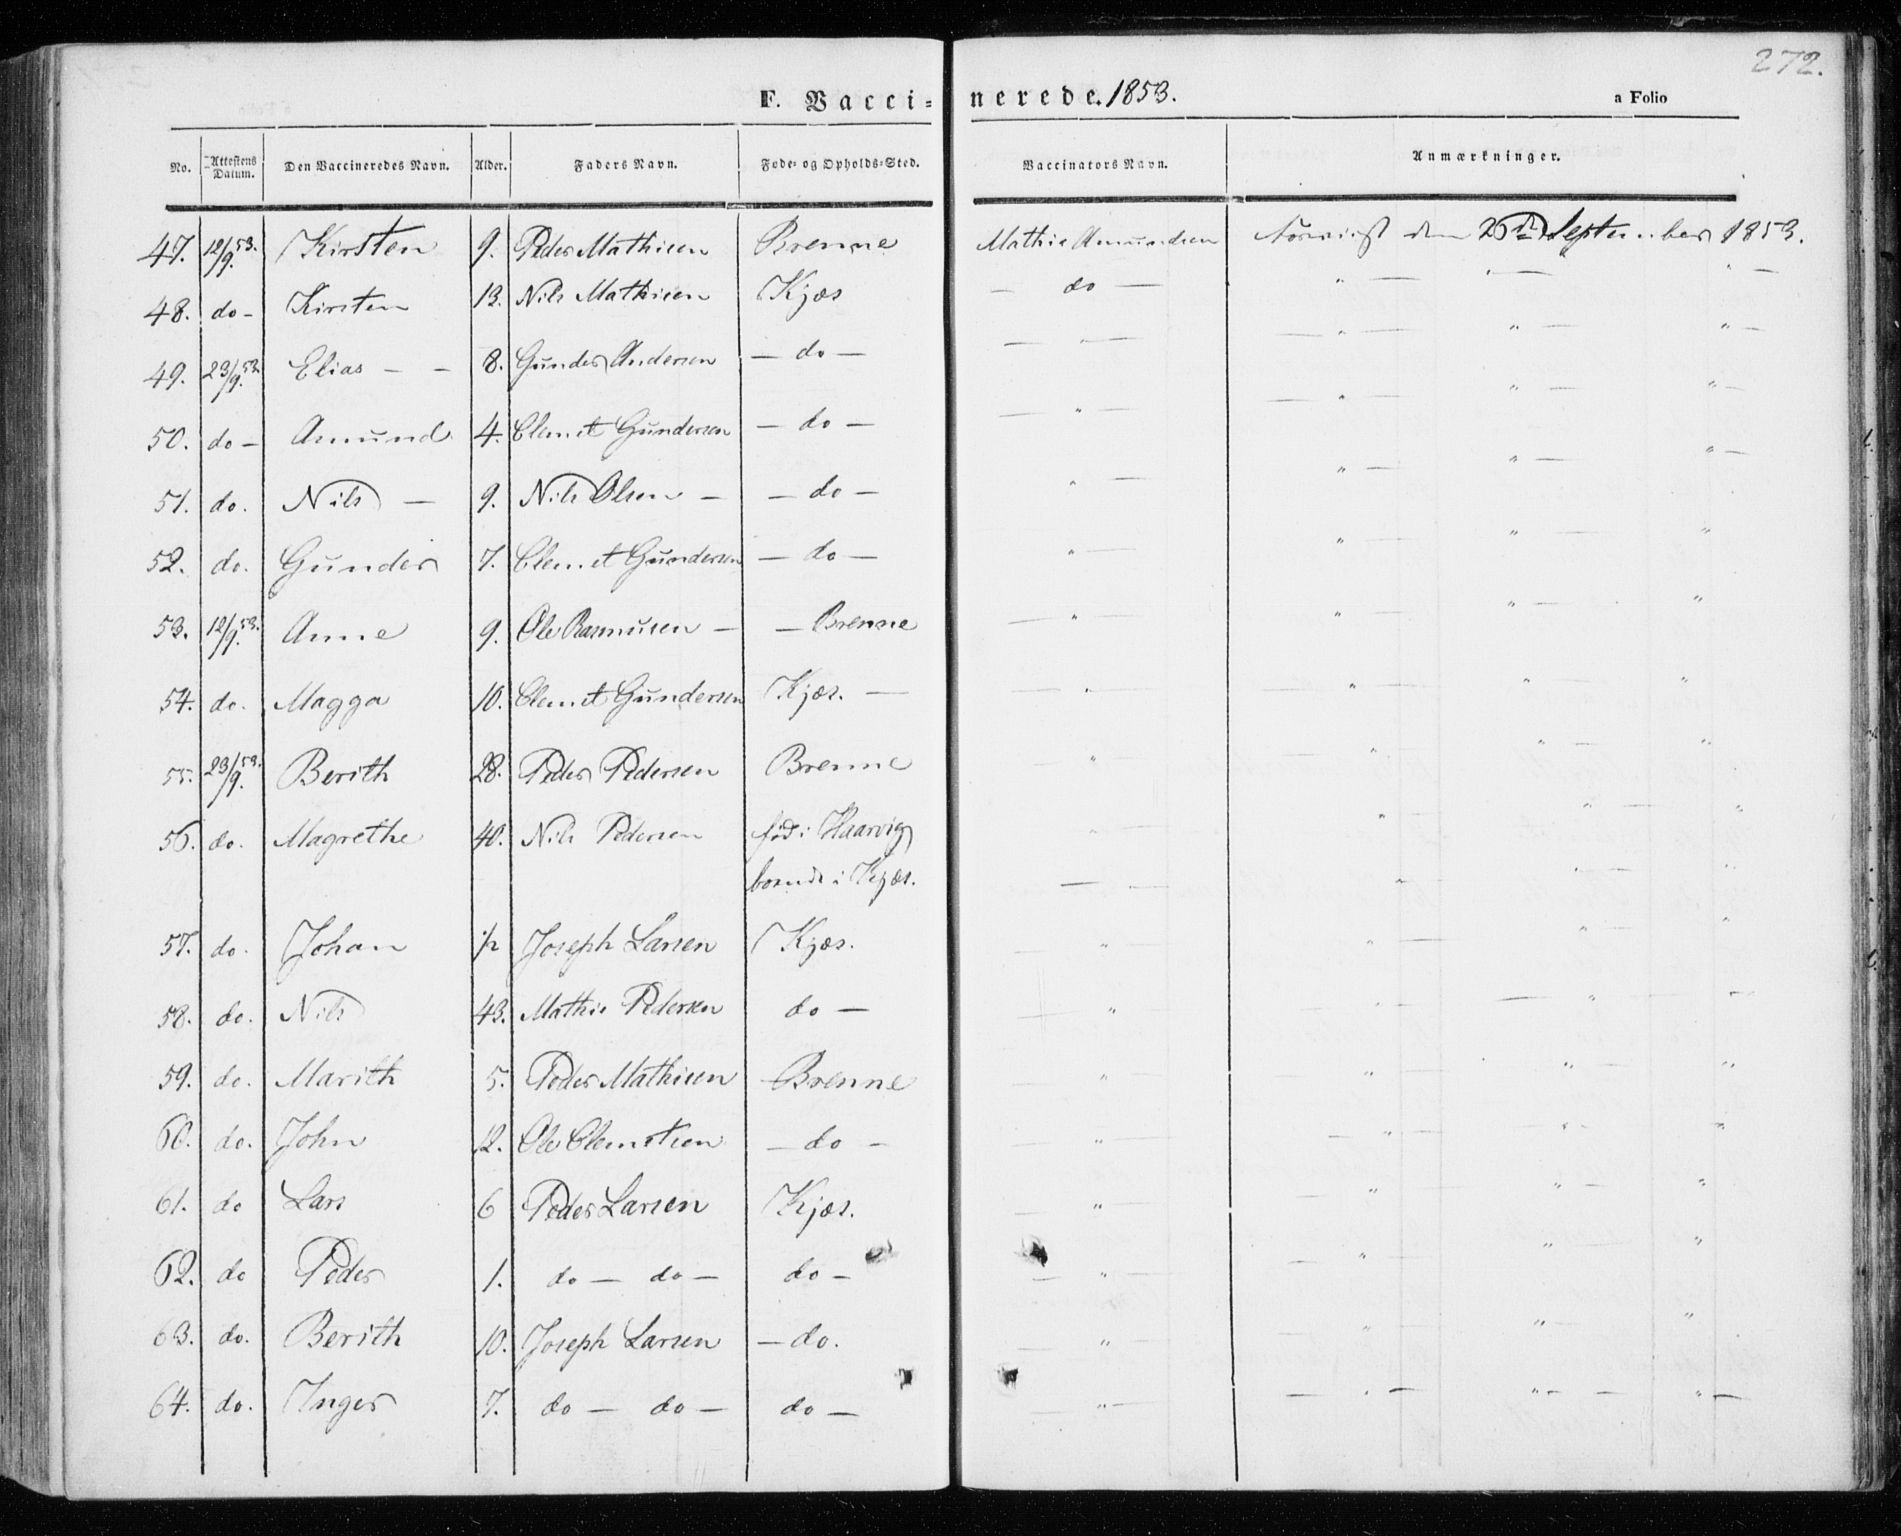 272.
F. Vacci- nerede. 1853. a Folio
No. Attestens Datum. Den Vaccineredes Navn. Alder. Faders Navn. Føde- og Opholds-Sted. Vaccinators Navn. Anmærkninger.
47. 12/9 53. Kirsten 9. Peder Mathisen Brenne Mathis Amundsen den September 1853.
48. do - Kirsten 13. Nils Mathisen Kjæs — do — " — " — " —
49. 23/9 53. Elias - - 8. Gunder Andersen — do — — " — — " — " — " —
50. do - Amund 4. Clemet Gundersen — do — — " — — " — " — " —
51. do. Nils — 9. Nils Olsen — — do — " — " — " — " —
52. do. Gunder 7. Clemet Gundersen — do — " — " — " — "
53. 12/9 53. Anne 9. Ole Rasmusen — — Brenne — " — " — " — "
54. do. Magga 10. Clemet Gundersen Kjæs. — — " — — " — " — "
55. 23/9 53. Berith 28. Peder Pedersen Brenne " " — " — "
56. do. Magrethe 40. Nils Pedersen fød i Haarvig " " — " — "
boende i Kjæs. — " — " "
57. do. Johan 1/2 Joseph Larsen Kjæs. " — " — " — "
58. do. Nils 43. Mathis Pedersen do — — " " — — " — "
59. do. Marith 5. Peder Mathisen Brenne — " — " " — "
60. do. John 12. Ole Clemetsen — do — — " — — " — " - "
61. do Lars 6 Peder Larsen Kjæs. — " — — " — " — "
62. do Peder 1. do — do — do — — " — — " — " — "
63. do. Berith 10. Joseph Larsen — do. — " — " — " — "
64. do. Inger 7. do — do — do — — " — — " — " — — " —